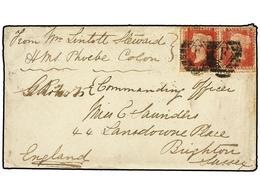 From Wm Lintott Steward
HMS Phoebe Colon
Commanding Officer
Miss E Saunders
44 Lansdowne Place
Brighton
Sussex
England